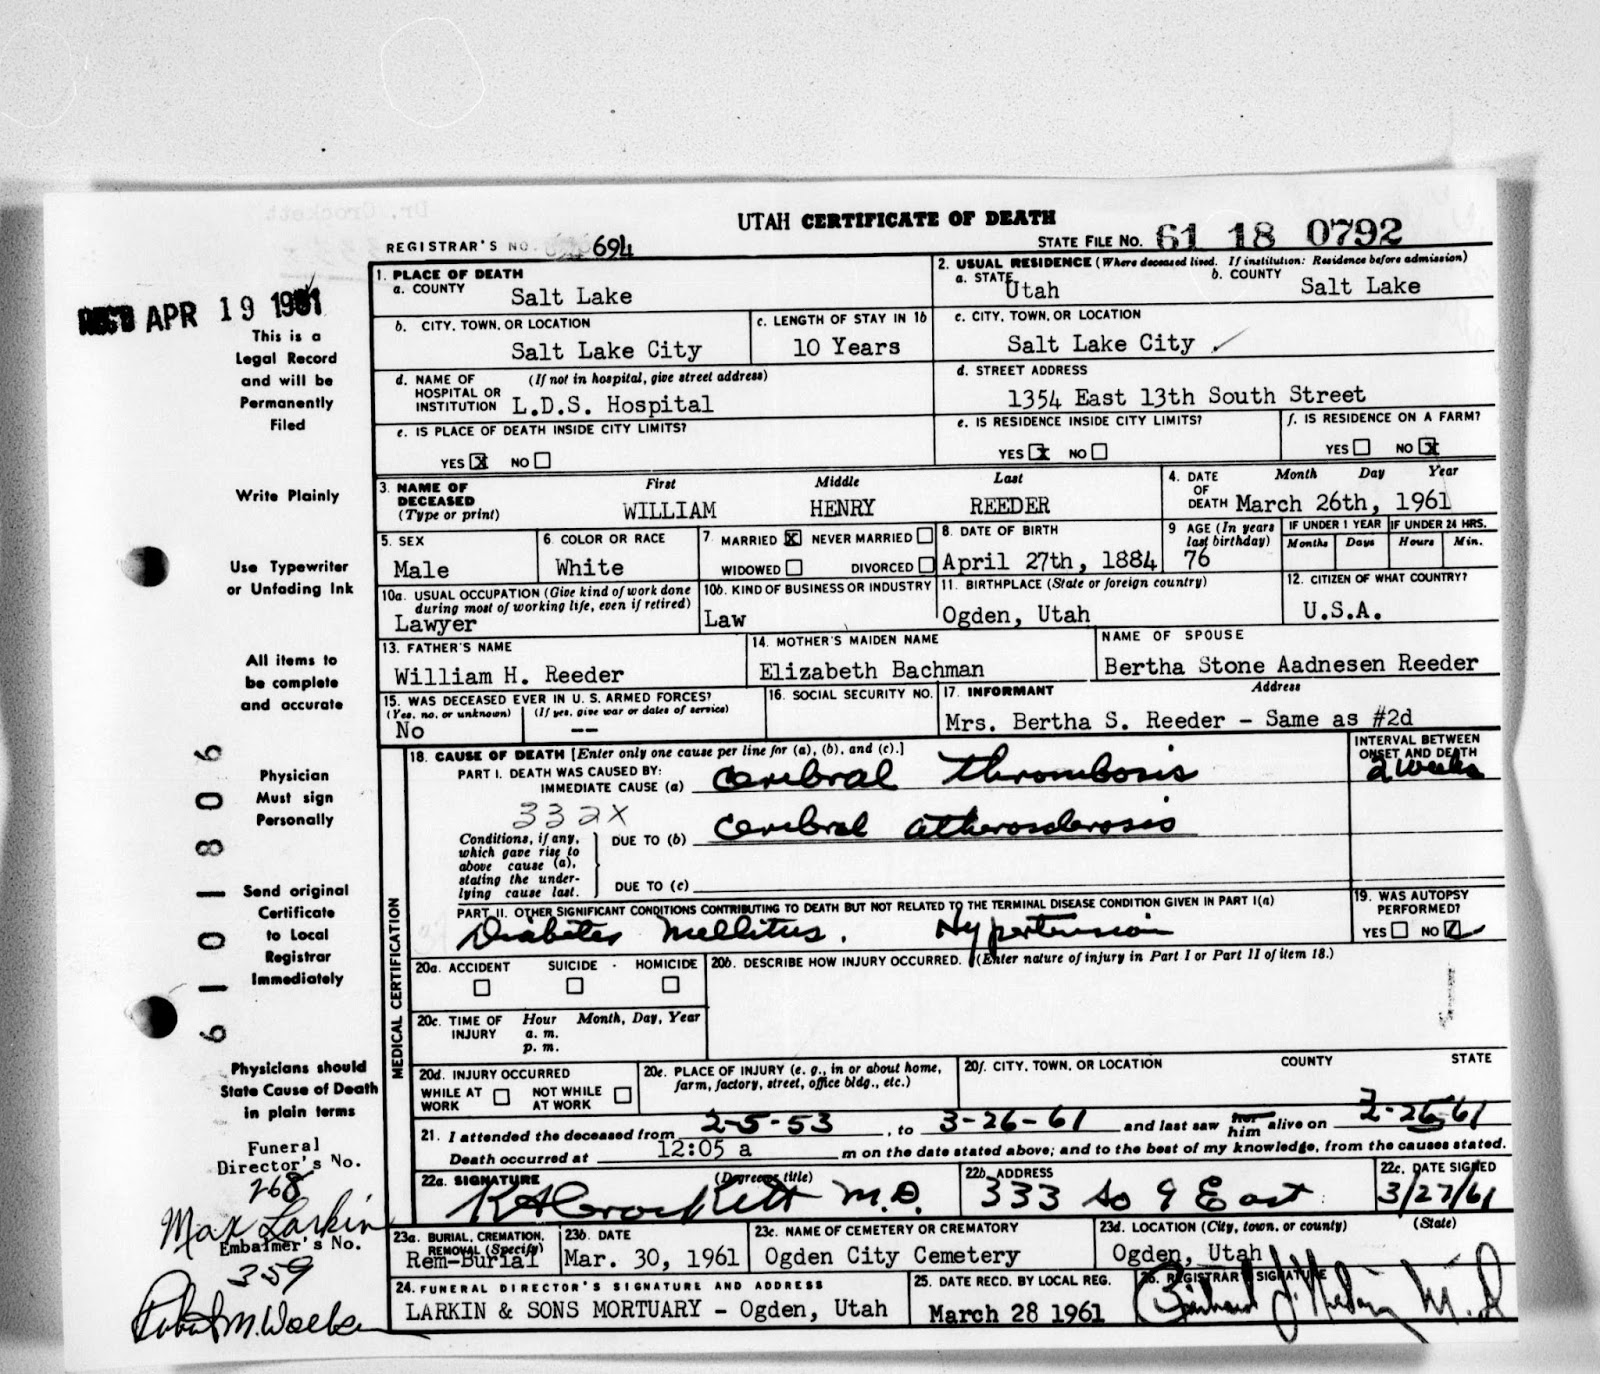 UTAH CERTIFICATE OF DEATH
REGISTRAR'S NO. 694
STATE FILE NO. 61 18 0792
REC'D APR 19 1961
This is a
Legal Record
and will be
Permanently
Filed
Write Plainly
Use Typewriter
or Unfading Ink
All items to
be complete
and accurate
Physician
Must sign
Personally
Send original
Certificate
to Local
Registrar
Immediately
Physicians should
State Cause of Death
in plain terms
Funeral
Director's No.
268
Max Larkin
Embalmer's No.
359
6101806
1. PLACE OF DEATH
a. COUNTY
Salt Lake
2. USUAL RESIDENCE (Where deceased lived. If institution: Residence before admission)
a. STATE
Utah
b. COUNTY
Salt Lake
b. CITY, TOWN, OR LOCATION
Salt Lake City
c. LENGTH OF STAY IN 1b
10 Years
c. CITY, TOWN, OR LOCATION
Salt Lake City
d. NAME OF HOSPITAL OR INSTITUTION
(If not in hospital, give street address)
L.D.S. Hospital
d. STREET ADDRESS
1354 East 13th South Street
e. IS PLACE OF DEATH INSIDE CITY LIMITS?
YES X NO
e. IS RESIDENCE INSIDE CITY LIMITS?
YES X NO
f. IS RESIDENCE ON A FARM?
YES NO X
3. NAME OF DECEASED
(Type or print)
First Middle Last
WILLIAM HENRY REEDER
4. DATE OF DEATH
Month Day Year
March 26th, 1961
5. SEX
Male
6. COLOR OR RACE
White
7. MARRIED X NEVER MARRIED
WIDOWED DIVORCED
8. DATE OF BIRTH
April 27th, 1884
9 AGE (In years last birthday)
76
IF UNDER 1 YEAR IF UNDER 24 HRS.
Months Days Hours Min.
10a. USUAL OCCUPATION (Give kind of work done
during most of working life, even if retired)
Lawyer
10b. KIND OF BUSINESS OR INDUSTRY
Law
11. BIRTHPLACE (State or foreign country)
Ogden, Utah
12. CITIZEN OF WHAT COUNTRY?
U.S.A.
13. FATHER'S NAME
William H. Reeder
14. MOTHER'S MAIDEN NAME
Elizabeth Bachman
NAME OF SPOUSE
Bertha Stone Aadnesen Reeder
15. WAS DECEASED EVER IN U. S. ARMED FORCES?
(Yes, no, or unknown) (If yes, give war or dates of service)
No --
16. SOCIAL SECURITY NO.
17. INFORMANT Address
Mrs. Bertha S. Reeder - Same as #2d
MEDICAL CERTIFICATION
18. CAUSE OF DEATH [Enter only one cause per line for (a), (b), and (c).]
INTERVAL BETWEEN
ONSET AND DEATH
PART I. DEATH WAS CAUSED BY:
IMMEDIATE CAUSE (a) Cerebral thrombosis
2 weeks
332X
Conditions, if any,
which gave rise to
above cause (a),
stating the under-
lying cause last.
DUE TO (b) Cerebral atherosclerosis
DUE TO (c)
PART II. OTHER SIGNIFICANT CONDITIONS CONTRIBUTING TO DEATH BUT NOT RELATED TO THE TERMINAL DISEASE CONDITION GIVEN IN PART I(a)
Diabetes Mellitus. Hypertension
19. WAS AUTOPSY
PERFORMED?
YES NO
20a. ACCIDENT SUICIDE HOMICIDE
20b. DESCRIBE HOW INJURY OCCURRED. (Enter nature of injury in Part I or Part II of item 18.)
20c. TIME OF INJURY
Hour Month, Day, Year
a. m.
p. m.
20d. INJURY OCCURRED
WHILE AT WORK NOT WHILE AT WORK
20e. PLACE OF INJURY (e. g., in or about home,
farm, factory, street, office bldg., etc.)
20f. CITY, TOWN, OR LOCATION COUNTY STATE
21. I attended the deceased from 2-5-53, to 3-26-61 and last saw her him alive on
Death occurred at 12:05 a m on the date stated above; and to the best of my knowledge, from the causes stated.
22a. SIGNATURE (Degree or title)
Crockett M.D.
22b. ADDRESS
333 So 9 East
22c. DATE SIGNED
3/27/61
23a. BURIAL, CREMATION, REMOVAL (Specify)
Rem-Burial
23b. DATE
Mar. 30, 1961
23c. NAME OF CEMETERY OR CREMATORY
Ogden City Cemetery
23d. LOCATION (City, town, or county) (State)
Ogden, Utah
24. FUNERAL DIRECTOR'S SIGNATURE AND ADDRESS
LARKIN & SONS MORTUARY - Ogden, Utah
25. DATE RECD. BY LOCAL REG.
March 28 1961
26. REGISTRAR'S SIGNATURE